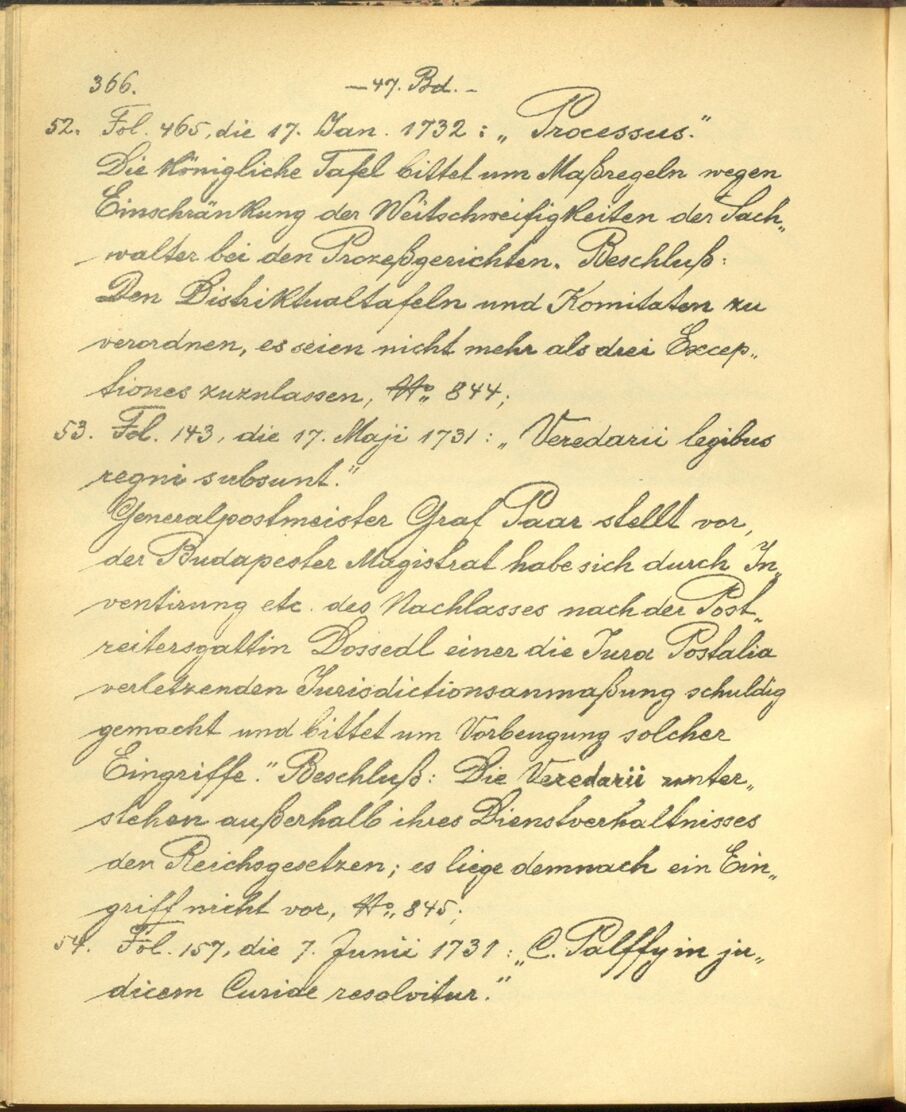 366. — 47. Bd. —
52. Fol. 465, die 17. Jan. 1732: „Processus."
Die königliche Tafel bittet um Maßregeln wegen
Einschränkung der Weitschweifigkeiten der Sach„
walter bei den Prozeßgerichten. Beschluß:
Den Distriktualtafeln und Komitaten zu
verordnen, es seien nicht mehr als drei Excep„
tiones zuzulassen, No. 844;
53. Fol. 143, die 17. Maji 1731: „Veredarii legibus
regni subsunt."
Generalpostmeister Graf Paar stellt vor,
der Budapester Magistrat habe sich durch In„
ventirung etc. des Nachlasses nach der Post„
reitersgattin Dossedl einer die Jura Postalia
verletzenden Jurisdictionsanmaßung schuldig
gemacht und bittet um Vorbeugung solcher
Eingriffe." Beschluß: Die Veredarii unter„
stehen außerhalb ihres Dienstverhältnisses
den Reichsgesetzen; es liege demnach ein Ein„
griff nicht vor, No. 845;
54. Fol. 157, die 7. Junii 1731: „C. Palffy in ju„
dicem Curiae resolvitur."